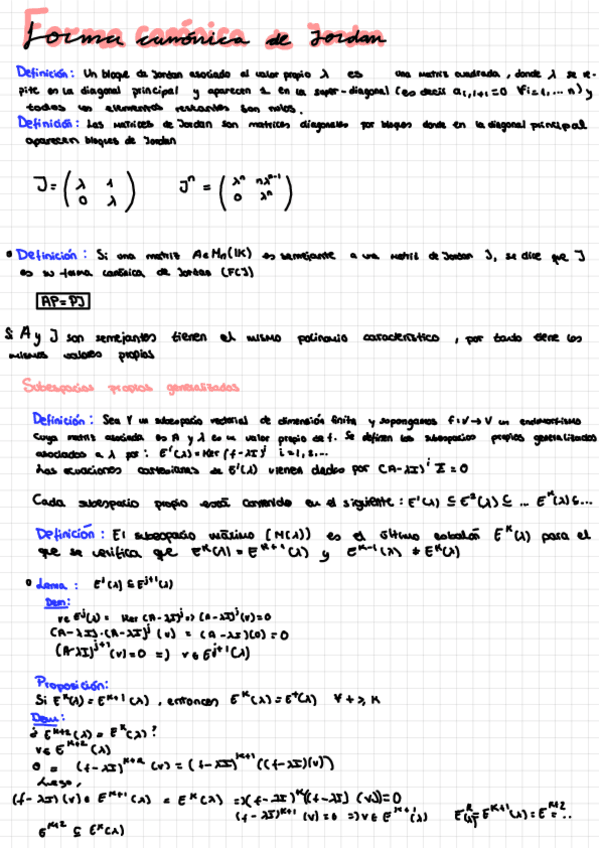 Forma canónica de Jordan
Definición: Un bloque de Jordan asociado al valor propio λ es una matriz cuadrada, donde λ se re-
pite en la diagonal principal y aparecen 1 en la super-diagonal (es decir a_{i,i+1}=0 ∀i=1,...n) y
todos los elementos restantes son nulos.
Definición: Las matrices de Jordan son matrices diagonales por bloques donde en la diagonal principal
aparecen bloques de Jordan
J = ( λ 1 ; 0 λ )   J^n = ( λ^n nλ^{n-1} ; 0 λ^n )
• Definición: Si una matriz A∈M_n(IK) es semejante a una matriz de Jordan J, se dice que J
es su forma canónica de Jordan (FCJ)
AP=PJ
Si A y J son semejantes tienen el mismo polinomio característico, por tanto tiene los
mismos valores propios
Subespacios propios generalizados
Definición: Sea V un subespacio vectorial de dimensión finita y supongamos f:V→V un endomorfismo
cuya matriz asociada es A y λ es un valor propio de f. Se definen los subespacios propios generalizados
asociados a λ por: E^i(λ)=Ker(f-λI)^i i=1,2,...
Las ecuaciones cartesianas de E^i(λ) vienen dadas por (A-λI)^i X = 0
Cada subespacio propio está contenido en el siguiente: E^1(λ) ⊆ E^2(λ) ⊆ ... E^k(λ) ⊆...
Definición: El subespacio máximo [M(λ)] es el último eslabón E^k(λ) para el
que se verifica que E^k(λ) = E^{k+1}(λ) y E^{k-1}(λ) ≠ E^k(λ)
• Lema: E^j(λ) ⊆ E^{j+1}(λ)
Dem:
v∈E^j(λ) = Ker(A-λI)^j => (A-λI)^j(v)=0
(A-λI)·(A-λI)^j (v) = (A-λI)(0) = 0
(A-λI)^{j+1}(v)=0 => v∈E^{j+1}(λ)
Proposición:
Si E^k(λ) = E^{k+1}(λ), entonces E^k(λ) = E^t(λ) ∀ t ≥ k
Dem:
¿ E^{k+2}(λ) = E^k(λ)?
v∈E^{k+2}(λ)
0 = (f-λI)^{k+2} (v) = (f-λI)^{k+1} ((f-λI)(v))
Luego,
(f-λI)(v) ∈ E^{k+1}(λ) = E^k(λ) => (f-λI)^k((f-λI)(v))=0
(f-λI)^{k+1}(v)=0 => v∈E^{k+1}(λ)
E^{k+2} ⊆ E^k(λ)